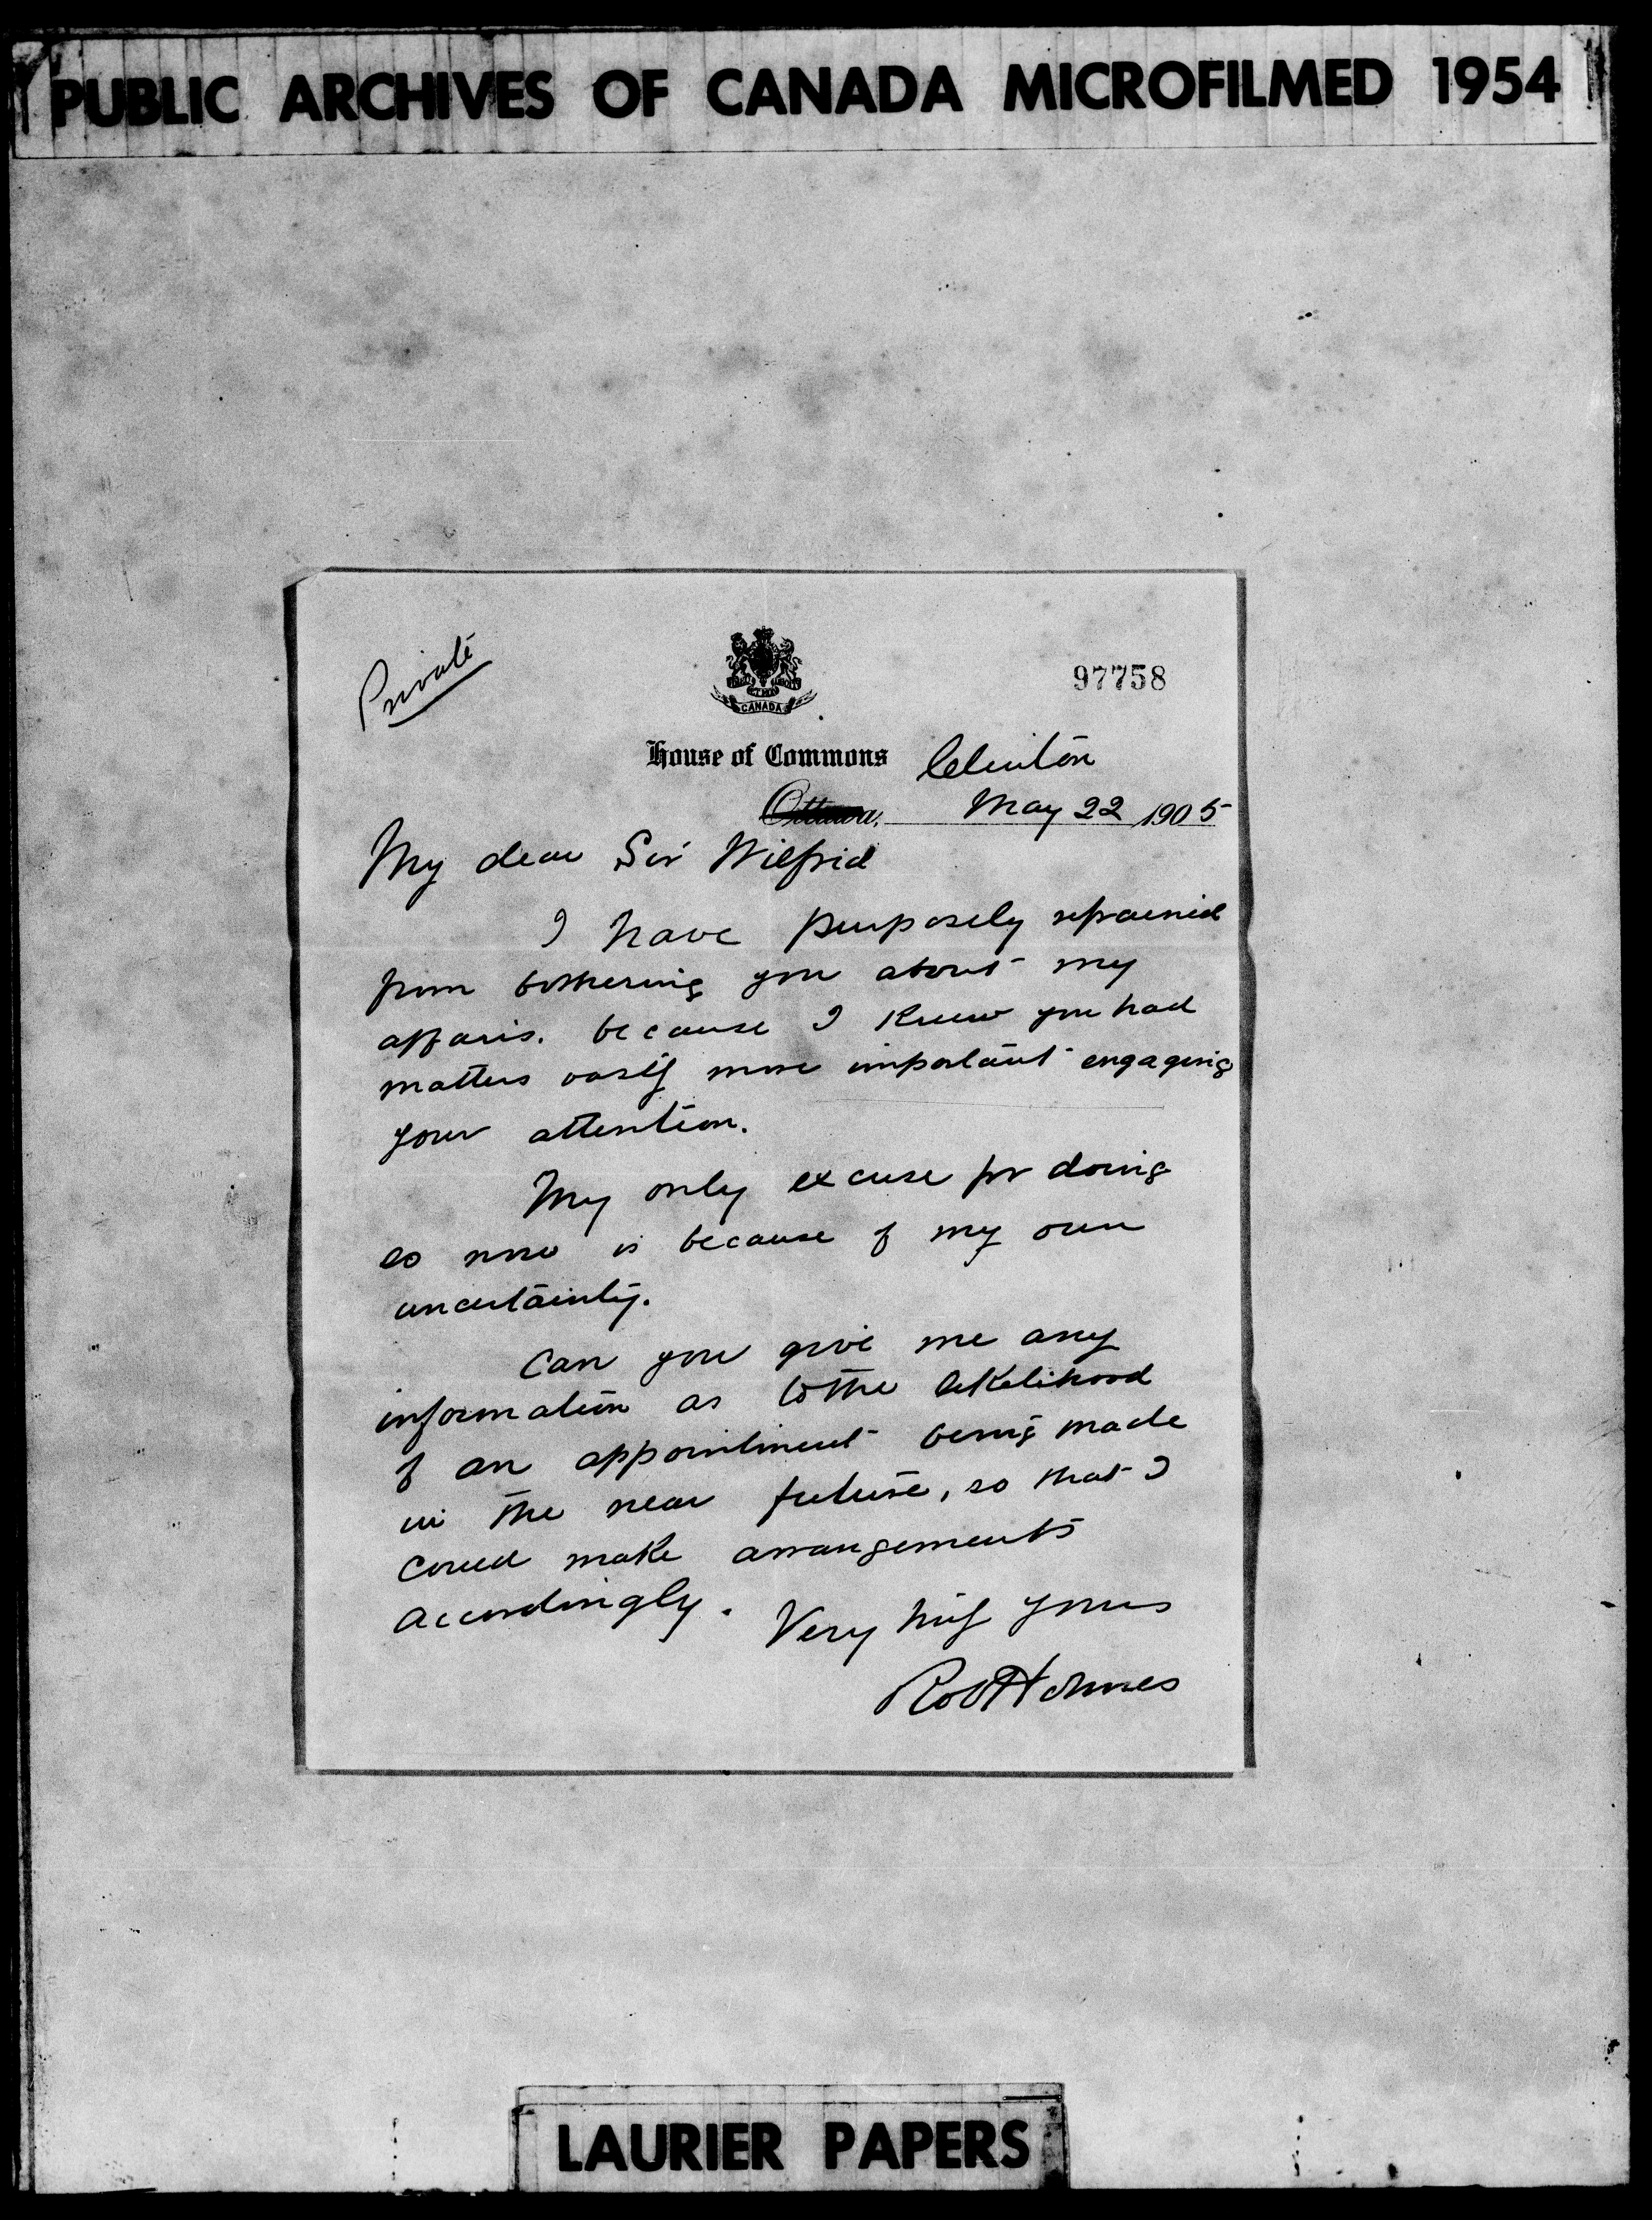 PUBLIC ARCHIVES OF CANADA MICROFILMED 1954
Private
CANADA
97758
House of Commons
Clinton
Ottawa, May 22 1905
My dear Sir Wilfrid
I have purposely refrained
from bothering you about my
affairs. because I knew you had
matters vastly more important engaging
your attention.
My only excuse for doing
so now is because of my own
uncertainty.
Can you give me any
information as to the likelihood
of an appointment being made
in the near future, so that I
could make arrangements
accordingly.
Very truly yours
Robt Holmes
LAURIER PAPERS